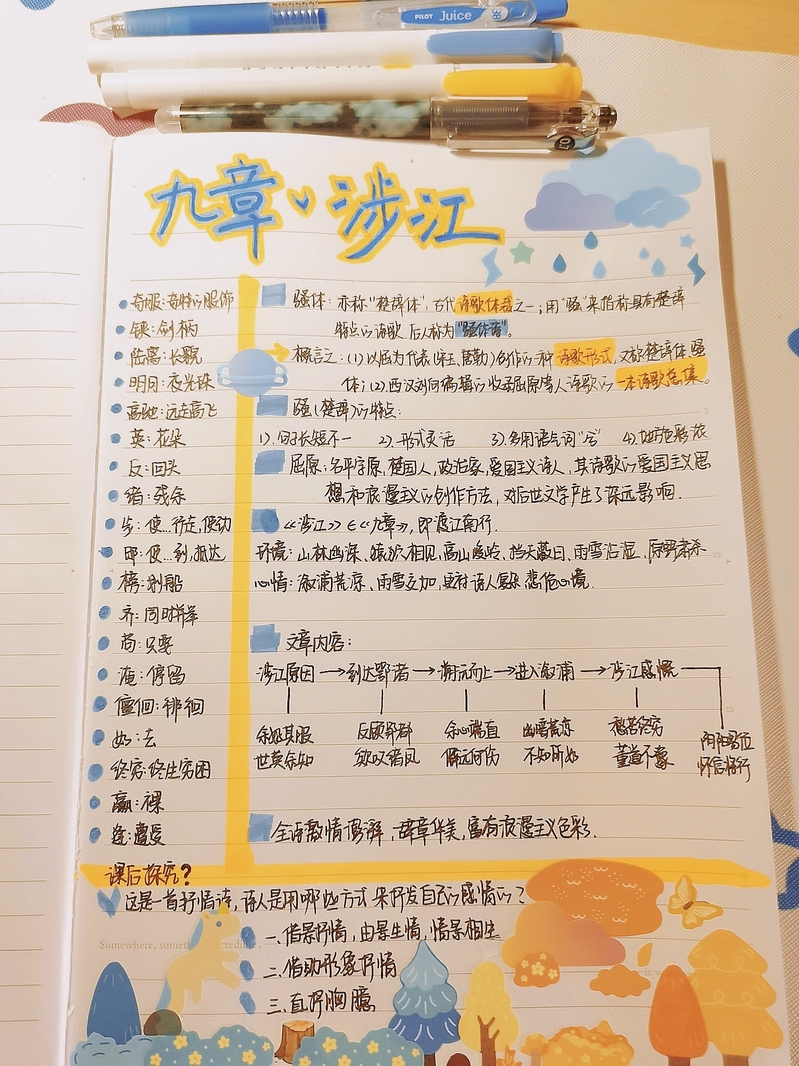 PILOT Juice
九章 涉江
奇服:奇特的服饰
铗:剑柄
陆离:长貌
明月:夜光珠
高驰:远走高飞
英:花朵
反:回头
绪:残余
步:使…行走,使动
邸:使…到,抵达
榜:划船
齐:同时并举
苟:只要
淹:停留
儃徊:徘徊
如:去
终穷:终生穷困
臝:裸
逢:遭受
骚体:亦称"楚辞体",古代诗歌体裁之一;用"骚"来指称具有楚辞
特点的诗歌 后人称为"骚体诗"。
概言之:(1)以屈为代表(宋玉、景勤)创作的一种诗歌形式 又称楚辞体 骚
体;(2)西汉刘向编辑的收录屈原等人诗歌的一本诗歌总集。
骚(楚辞)的特点:
1).句子长短不一 2).形式灵活 3).多用语气词"兮" 4).地方色彩浓
屈原:名平字原,楚国人,政治家,爱国主义诗人,其诗歌的爱国主义思
想和浪漫主义的创作方法,对后世文学产生了深远影响.
《涉江》∈《九章》,即渡江南行.
环境:山林幽深、猿狖相见,高山峻岭、挡天蔽日、雨雪沾湿、原野肃杀
心情:溆浦荒凉、雨雪交加,更衬诗人复杂悲伤心境.
文章内容:
涉江原因→到达鄂渚→溯沅而上→进入溆浦→涉江感慨
余幼其服 反顾鄂群 余心端直 幽暗荒凉 愁苦终穷
世莫余知 欸叹绪风 僻远何伤 不知所如 董道不豫
阴阳易位
怀信将行
全诗激情澎湃,辞章华美,富有浪漫主义色彩.
课后探究?
这是一首抒情诗,诗人是用哪些方式来抒发自己的感情的?
一.借景抒情,由景生情,情景相生
二.借助形象抒情
三.直抒胸臆